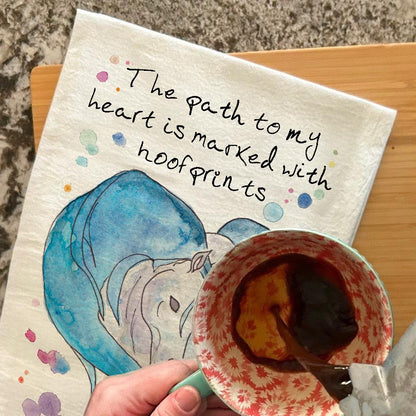 The path to my
heart is marked with
hoofprints